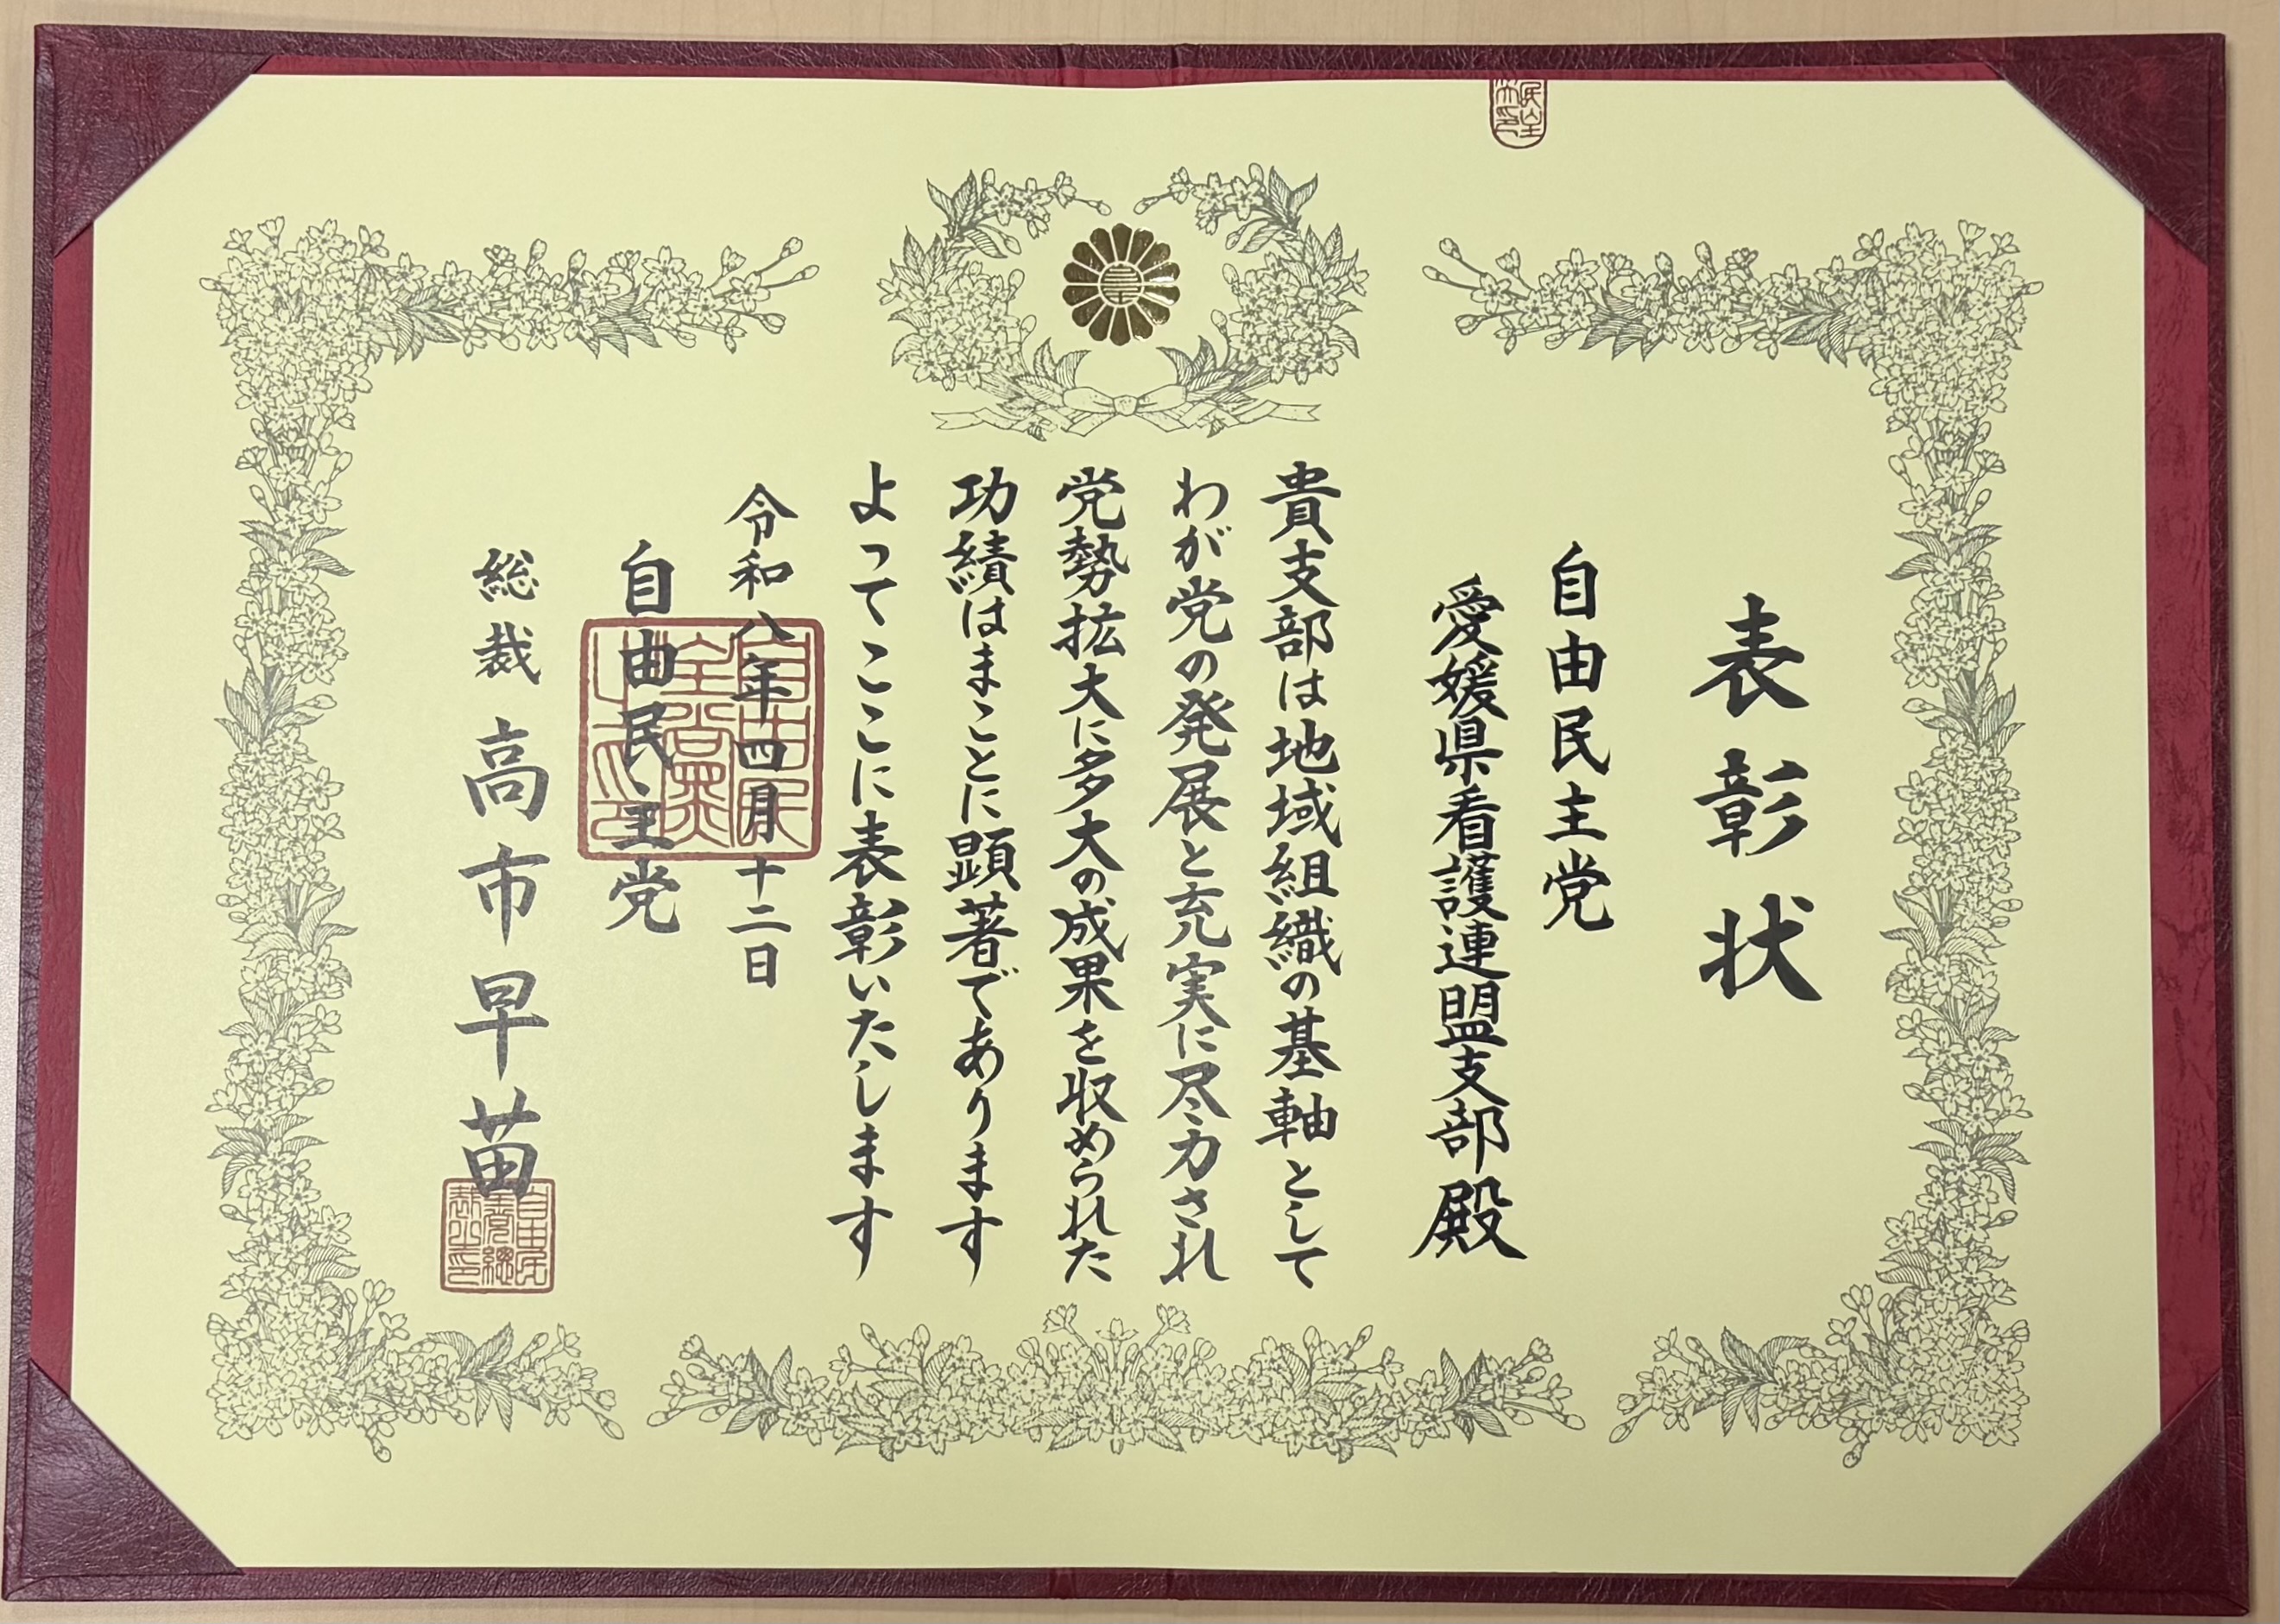 表彰状
自由民主党
愛媛県看護連盟支部殿
貴支部は地域組織の基軸として
わが党の発展と充実に尽力され
党勢拡大に多大の成果を収められた
功績はまことに顕著であります
よってここに表彰いたします
令和八年四月十二日
自由民主党
総裁 高市早苗